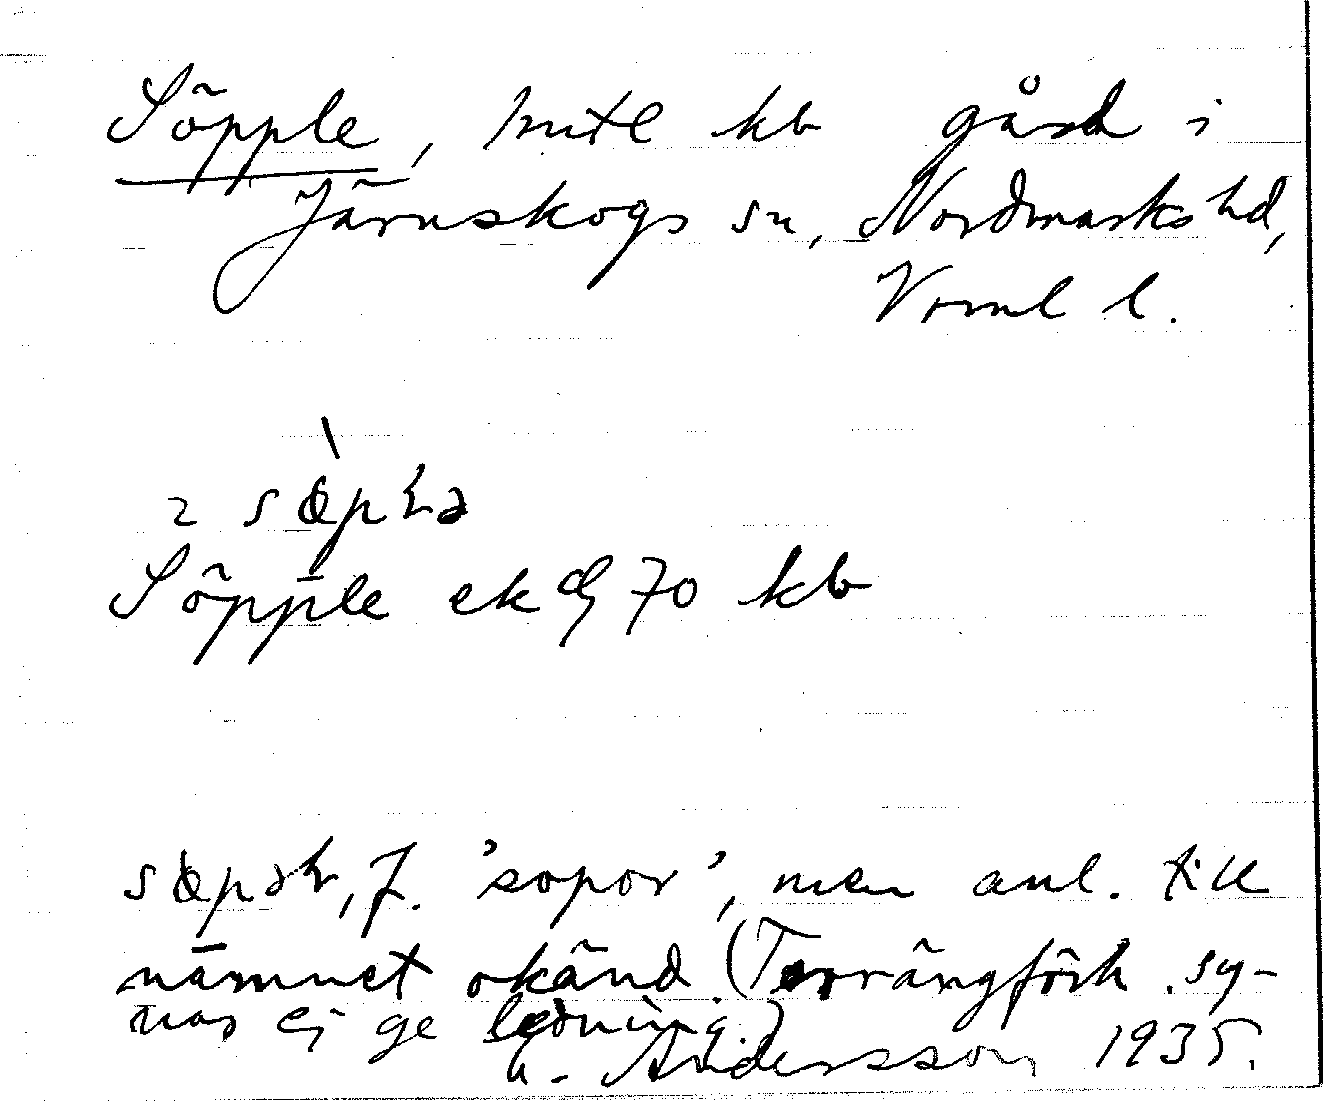 Söpple, mtl kb gård i
Järnskogs sn, Nordmarks hd,
Vrml l.
2 sö̀pɫə
Söpple ek bl 70 kb
söpəɫ, f. 'sopor', men anl. till
namnet okänd. (Terrängförh. sy-
nas ej ge ledning.)
Andersson 1935.